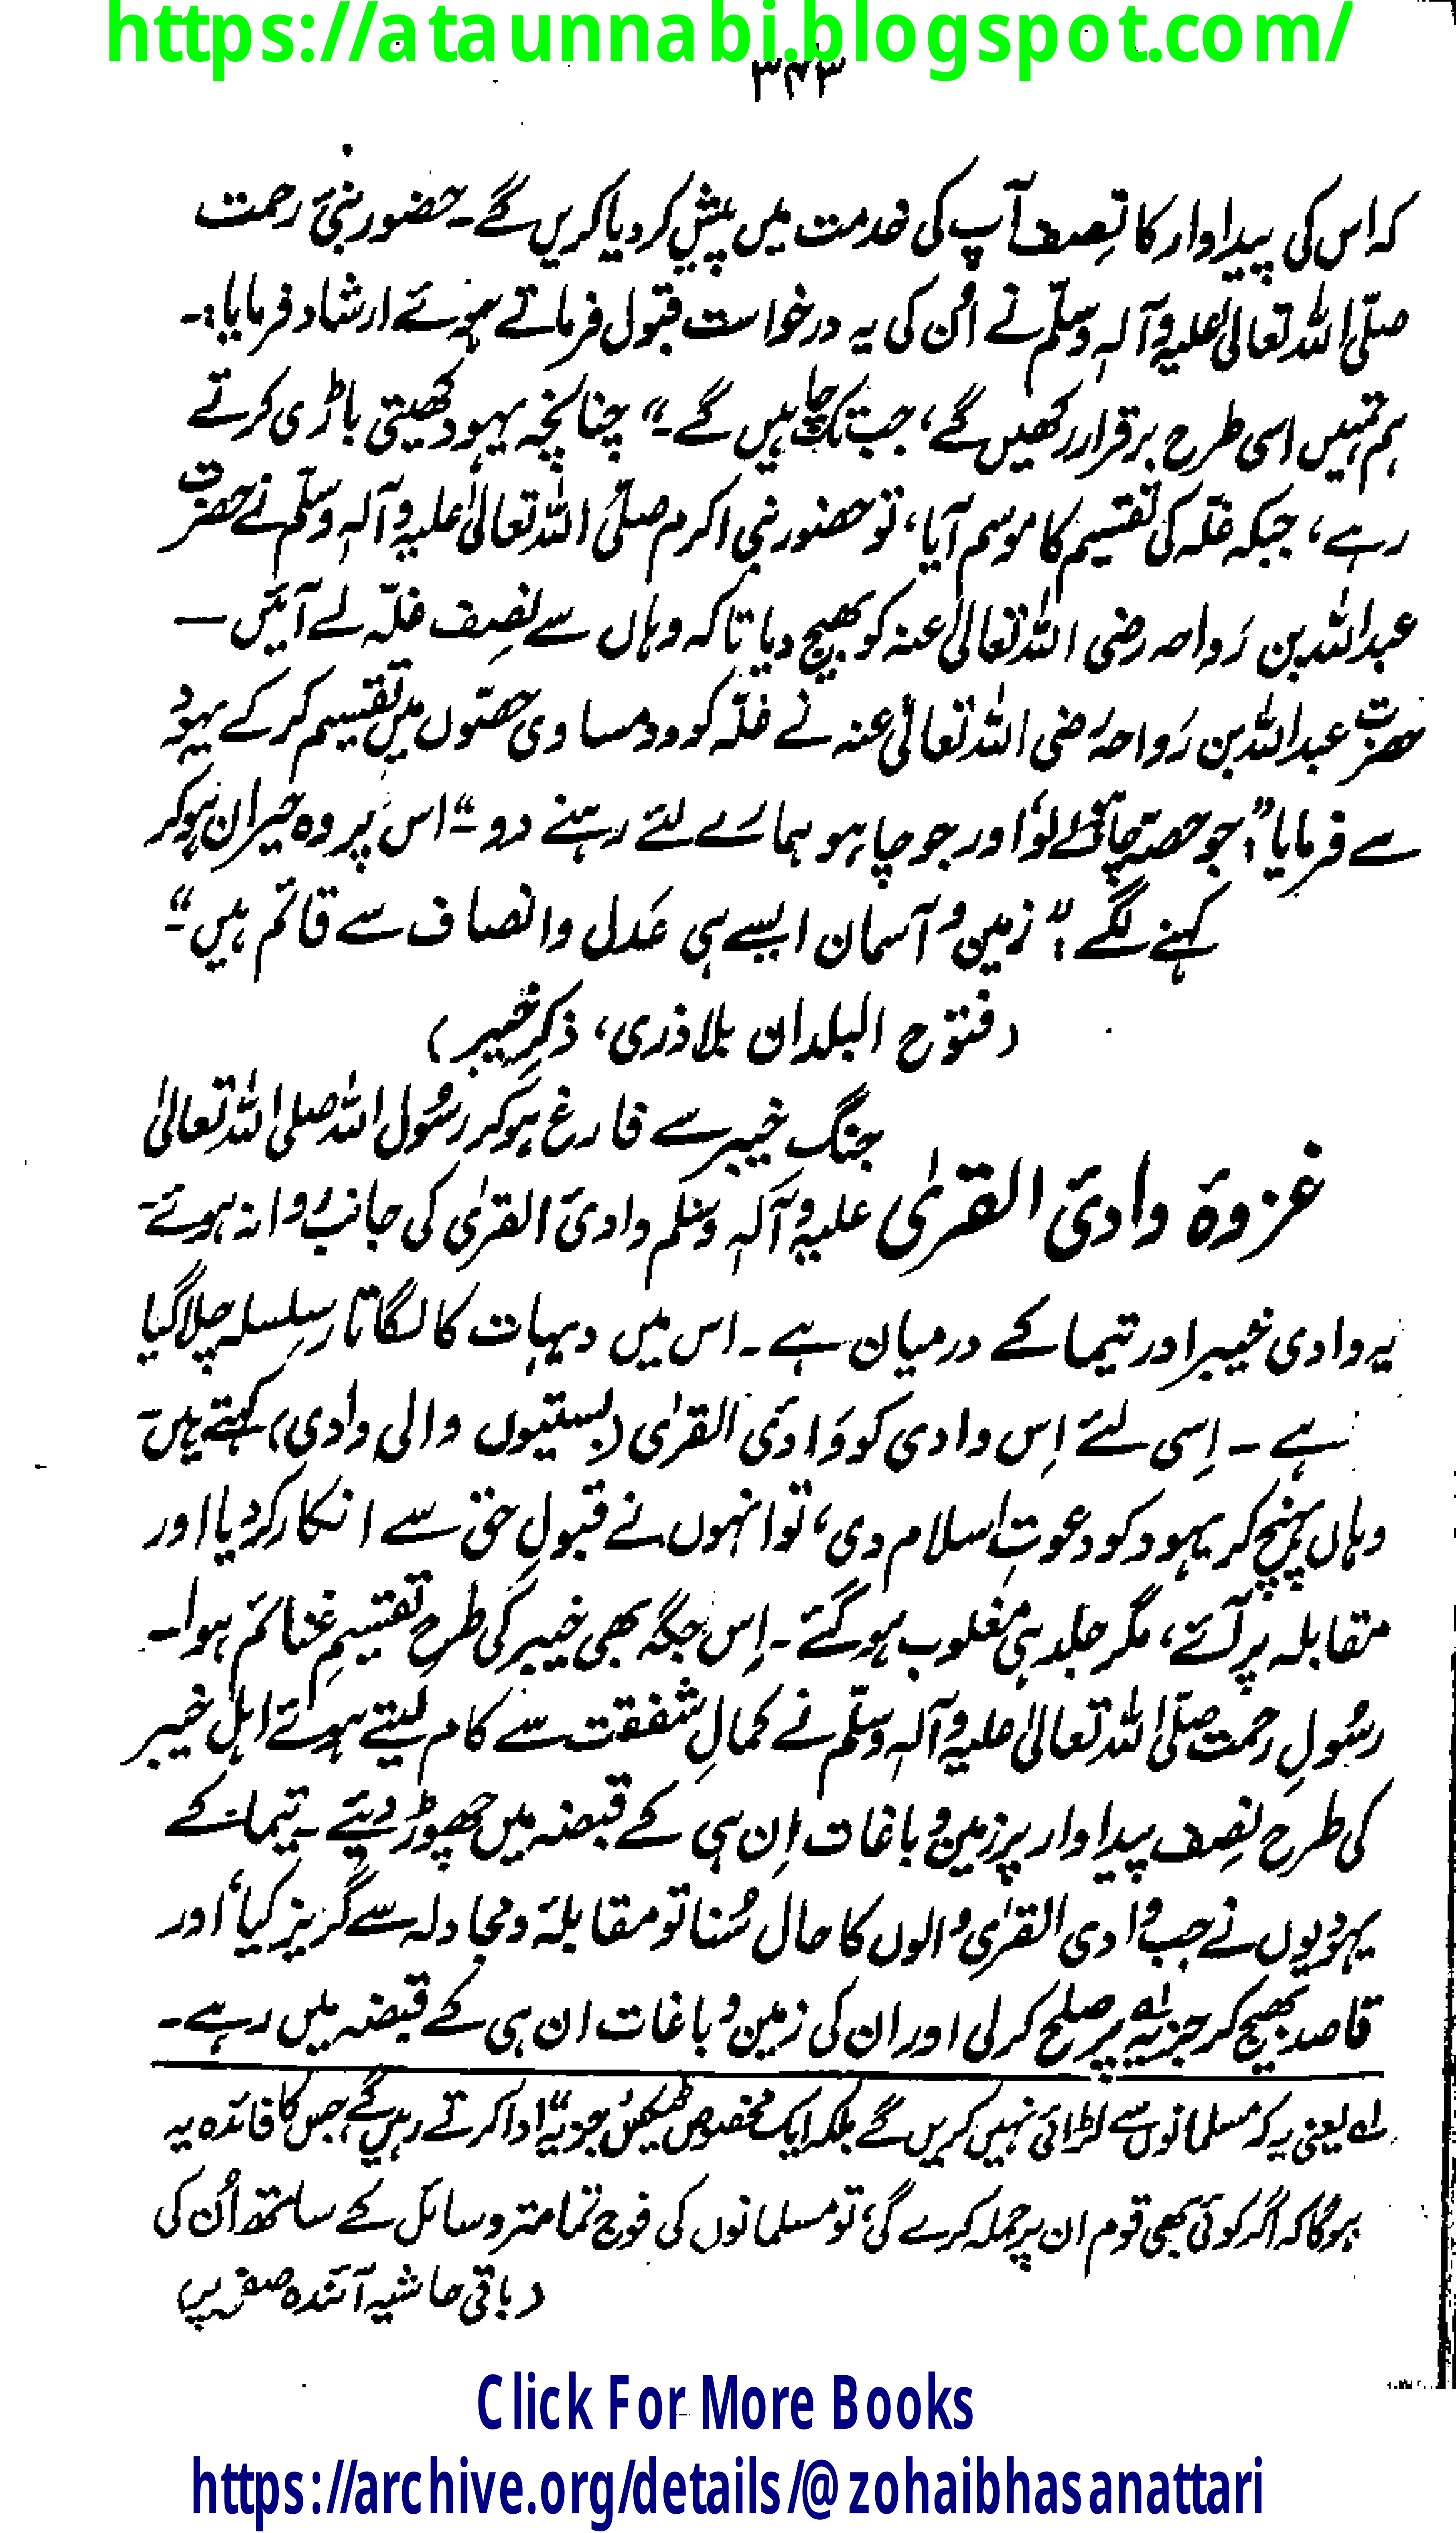 https://ataunnabi.blogspot.com/
۳۴۳
کہ اس کی پیداوار کا نِصف آپ کی خدمت میں پیش کر دیا کریں گے۔ حضور نبئ رحمت
صلّی اللہ تعالیٰ علیہ وآلہٖ وسلّم نے اُن کی یہ درخواست قبول فرماتے ہوئے ارشاد فرمایا:۔
ہم تمہیں اسی طرح برقرار رکھیں گے، جب تک چاہیں گے۔“ چنانچہ یہود کھیتی باڑی کرتے
رہے، جبکہ غلّہ کی تقسیم کا موسم آیا، تو حضور نبی اکرم صلّی اللہ تعالیٰ علیہ وآلہٖ وسلّم نے حضرت
عبداللہ بن رَواحہ رضی اللہ تعالیٰ عنہ کو بھیج دیا تاکہ وہاں سے نصِف غلّہ لے آئیں —
حضرت عبداللہ بن رَواحہ رَضی اللہ تعالیٰ عنہ نے غلّہ کو دو مساوی حصّوں میں تقسیم کر کے یہود
سے فرمایا:”جو حصّہ چاہو لے لو، اور جو چاہو ہمارے لئے رہنے دو۔“ اس پر وہ حیران ہو کر
کہنے لگے:” زمین و آسمان ایسے ہی عَدل و انصاف سے قائم ہیں۔“
(فتوح البلدان بلاذری، ذکرِ خیبر)
جنگ خیبر سے فارغ ہو کر رسُول اللہ صلی اللہ تعالیٰ
غزوۂ وادئ القرٰی علیہ وآلہٖ وسلم وادئ القرٰی کی جانب روانہ ہوئے۔
یہ وادی خیبر اور تیما کے درمیان ہے۔ اس میں دیہات کا لگاتار سِلسلہ چلا گیا
ہے۔ اِسی لئے اِس وادی کو وَادئ القرٰی (بستیوں والی وادی) کہتے ہیں۔
وہاں پہنچ کر یہود کو دعوتِ اسلام دی، تو انہوں نے قبولِ حق سے انکار کر دیا اور
مقابلہ پر آئے، مگر جلد ہی مغلوب ہو گئے۔ اِس جگہ بھی خیبر کی طرح تقسیمِ غنائم ہوا۔
رسُولِ رحمت صلّی اللہ تعالیٰ علیہ وآلہٖ وسلّم نے کمالِ شفقت سے کام لیتے ہوئے اہل خیبر
کی طرح نصِف پیداوار پر زمین و باغات اِن ہی کے قبضہ میں چھوڑ دیئے۔ تیماء کے
یہودیوں نے جب وادی القرٰی والوں کا حال سُنا تو مقابلہ و مجادلہ سے گریز کیا، اور
قاصد بھیج کر جزیہ لہ پر صلح کر لی اور ان کی زمین و باغات ان ہی کے قبضہ میں رہے۔
لہ یعنی یہ کہ مسلمانوں سے لڑائی نہیں کریں گے بلکہ ایک مخصوص ٹیکس ”جزیہ“ ادا کرتے رہیں گے، جس کا فائدہ یہ
ہوگا کہ اگر کوئی بھی قوم ان پر حملہ کرے گی، تو مسلمانوں کی فوج تمامتر وسائل کے ساتھ اُن کی
(باقی حاشیہ آئندہ صفحہ پر)
Click For More Books
https://archive.org/details/@zohaibhasanattari